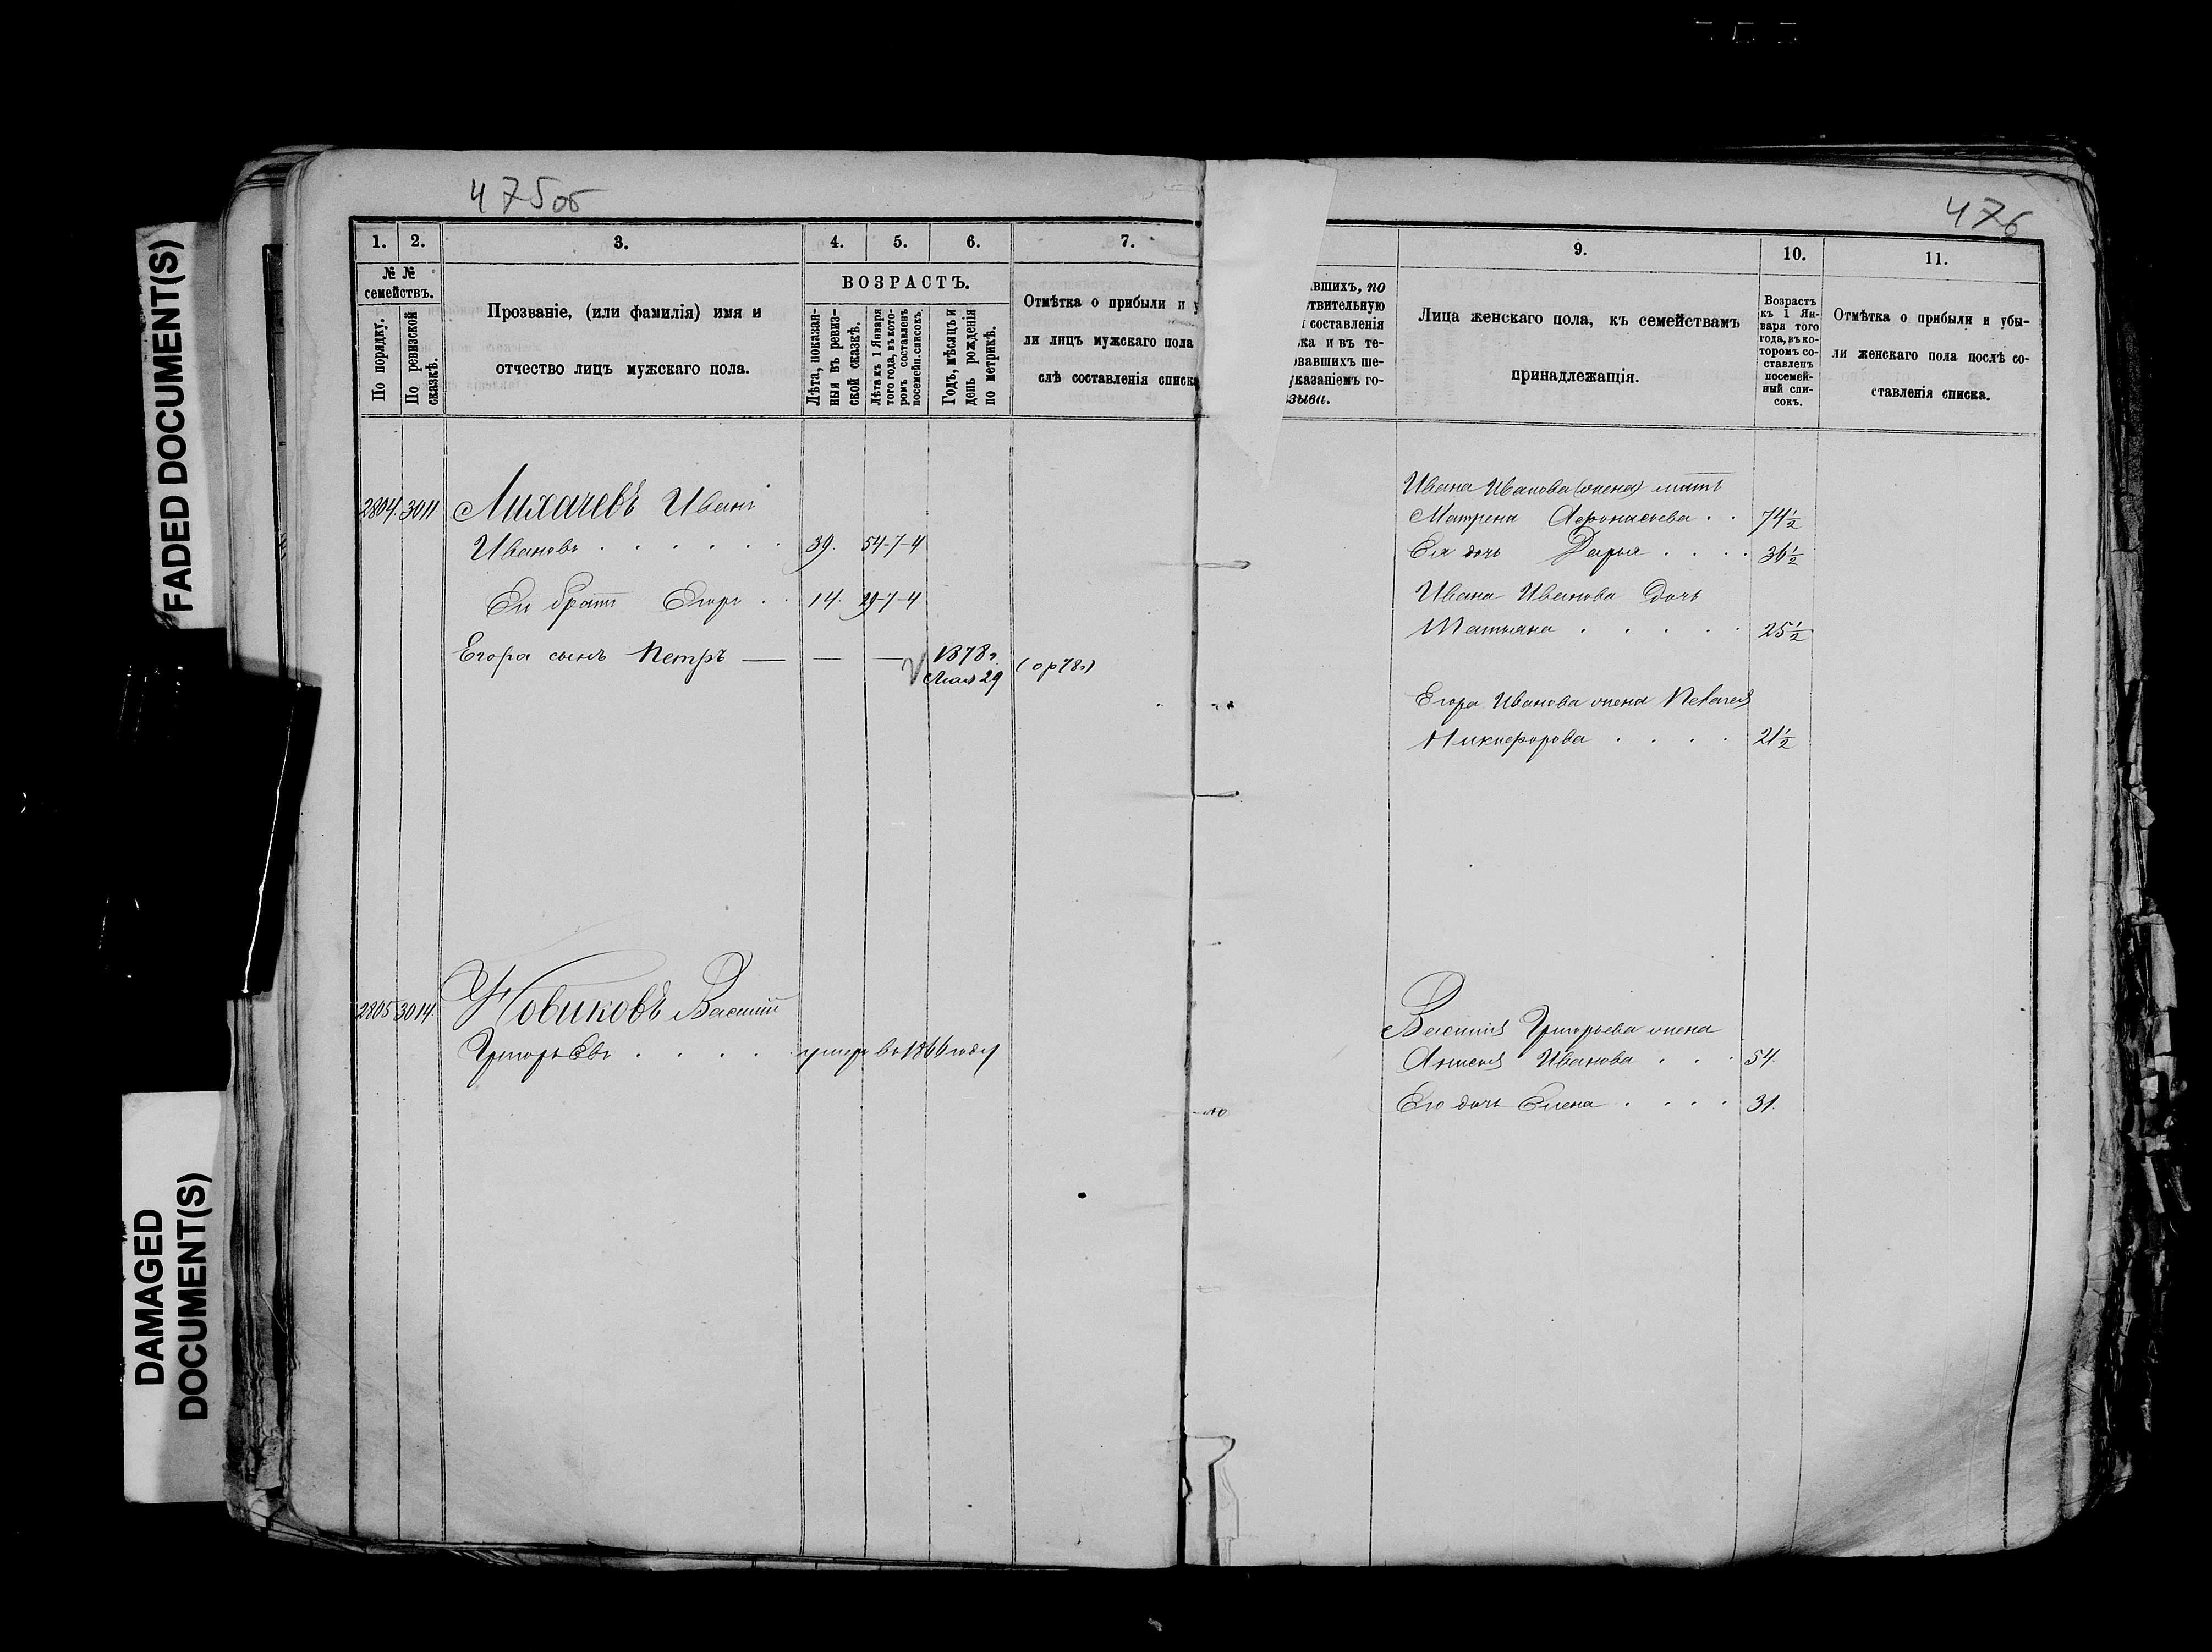 FADED DOCUMENT(S)
DAMAGED
DOCUMENT(S)
475об
1. 2. 3. 4. 5. 6. 7.
№ №
семействъ.
По порядку.
По ревизской
сказкѣ.
Прозваніе, (или фамилія) имя и
отчество лицъ мужскаго пола.
ВОЗРАСТЪ.
Лѣта, показан-
ныя въ ревиз-
ской сказкѣ.
Лѣта къ 1 Января
того года, въ кото-
ромъ составленъ
посемейн. списокъ.
Годъ, мѣсяцъ и
день рожденія
по метрикѣ.
Отмѣтка о прибыли и у
ли лицъ мужскаго пола
слѣ составленія списка
2804. 3011 Лихачевъ Иванъ
Ивановъ . . . . . . 39. 54-7-4
Ег братъ Егоръ . . 14. 29-7-4
Егора сынъ Петръ — — — 1878г.
Мая 29 (ор78г)
2805 3014 Новиковъ Василий
Григорьевъ . . . . . умеръ въ 1866 году
476
9. 10. 11.
вшихъ, по
ствительную
составленія
ка и въ те-
овавшихъ ше-
указаніемъ го-
зыва.
Лица женскаго пола, къ семействамъ
принадлежащія.
Возрастъ
къ 1 Ян-
варя того
года, въ ко-
торомъ со-
ставленъ
посемей-
ный спи-
сокъ.
Отмѣтка о прибыли и убы-
ли женскаго пола послѣ со-
ставленія списка.
Ивана Иванова (жена) мать
Матрена Афонасьева . . 74½
Ея дочь Дарья . . . . 36½
Ивана Иванова дочь
Татьяна . . . . . 25½
Егора Иванова жена Пелагея
Никифорова . . . . 21½
Василия Григорьева жена
Анисья Иванова . . . 54.
Его дочь Елена . . . . 31.